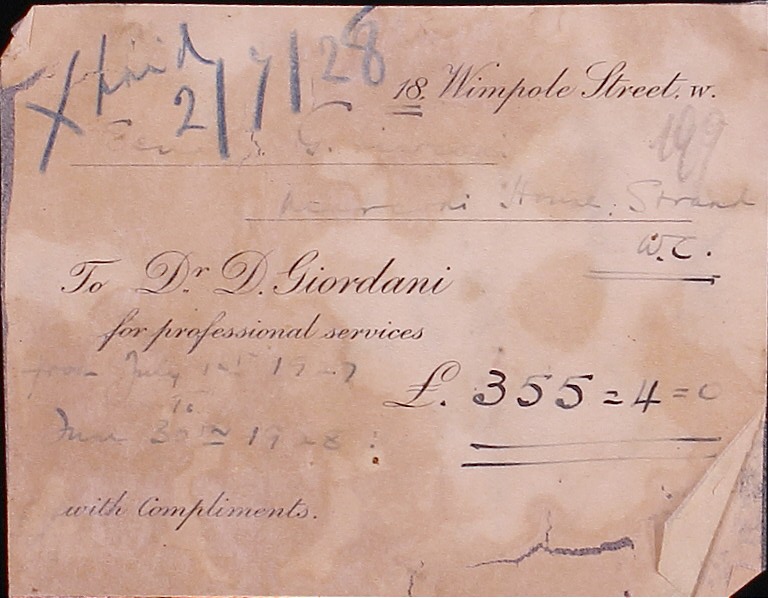 X paid
2/7/28
18. Wimpole Street. W.
199
House, Strand
W.C.
To Dr. D. Giordani
for professional services
from July 1st 1927
to
June 30th 1928:
£. 355 = 4 = 0
with Compliments.